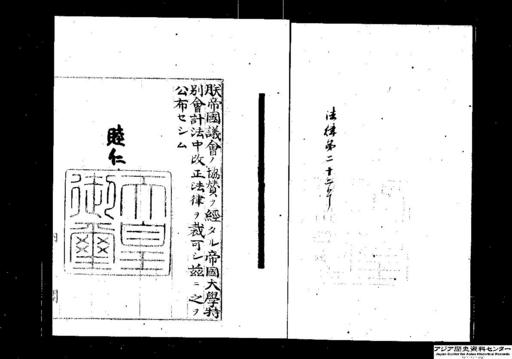 法律第二十二号
朕帝國議會ノ協贊ヲ經タル帝國大學特
別會計法中改正法律ヲ裁可シ茲ニ之ヲ
公布セシム
睦仁
天皇
御璽
アジア歴史資料センター
Japan Center for Asian Historical Records